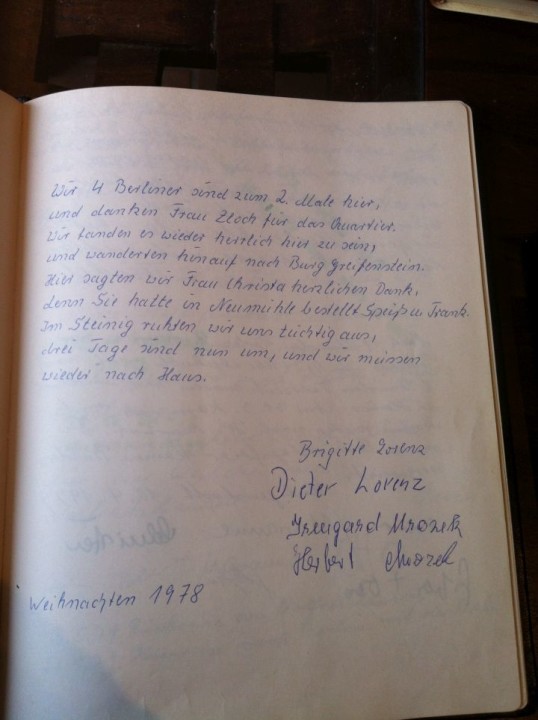 Wir 4 Berliner sind zum 2. Male hier,
und danken Frau Zloch für das Quartier.
Wir fanden es wieder herrlich hier zu sein,
und wanderten hinauf nach Burg Greifenstein.
Hier sagten wir Frau Christa herzlichen Dank,
denn Sie hatte in Neumühle bestellt Speiß u. Trank.
Im Steinig ruhten wir uns tüchtig aus,
drei Tage sind nun um, und wir müssen
wieder nach Haus.
Brigitte Lorenz
Dieter Lorenz
Irmgard Mrozek
Herbert Mrozek
Weihnachten 1978